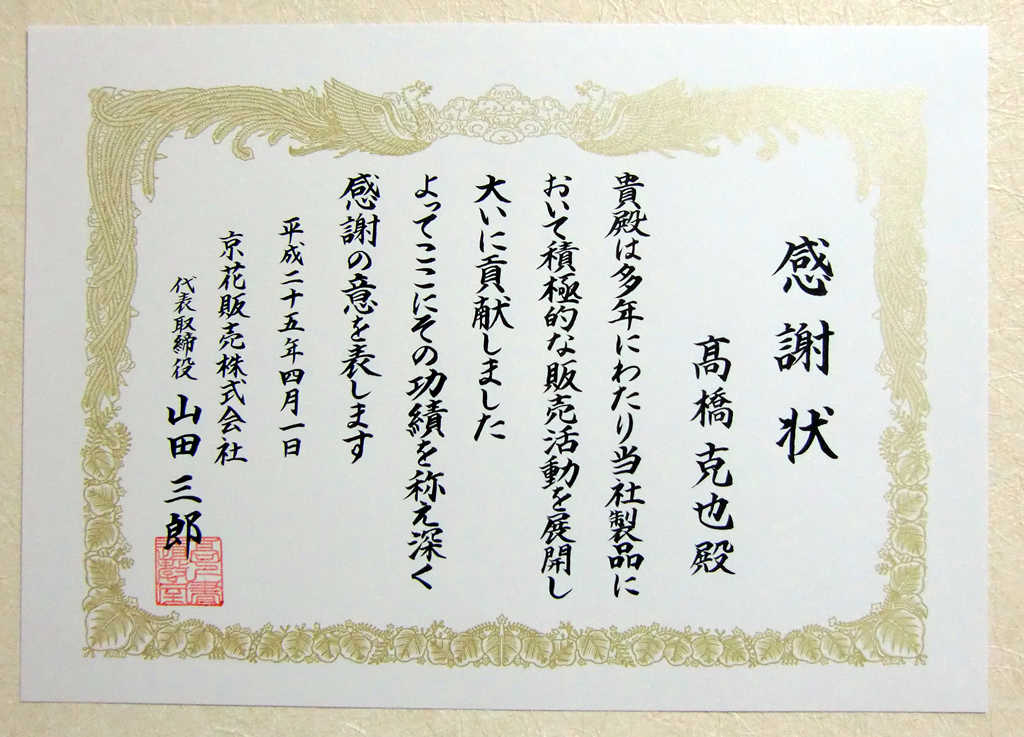 感謝状
髙橋克也殿
貴殿は多年にわたり当社製品に
おいて積極的な販売活動を展開し
大いに貢献しました
よってここにその功績を称え深く
感謝の意を表します
平成二十五年四月一日
京花販売株式会社
代表取締役 山田三郎